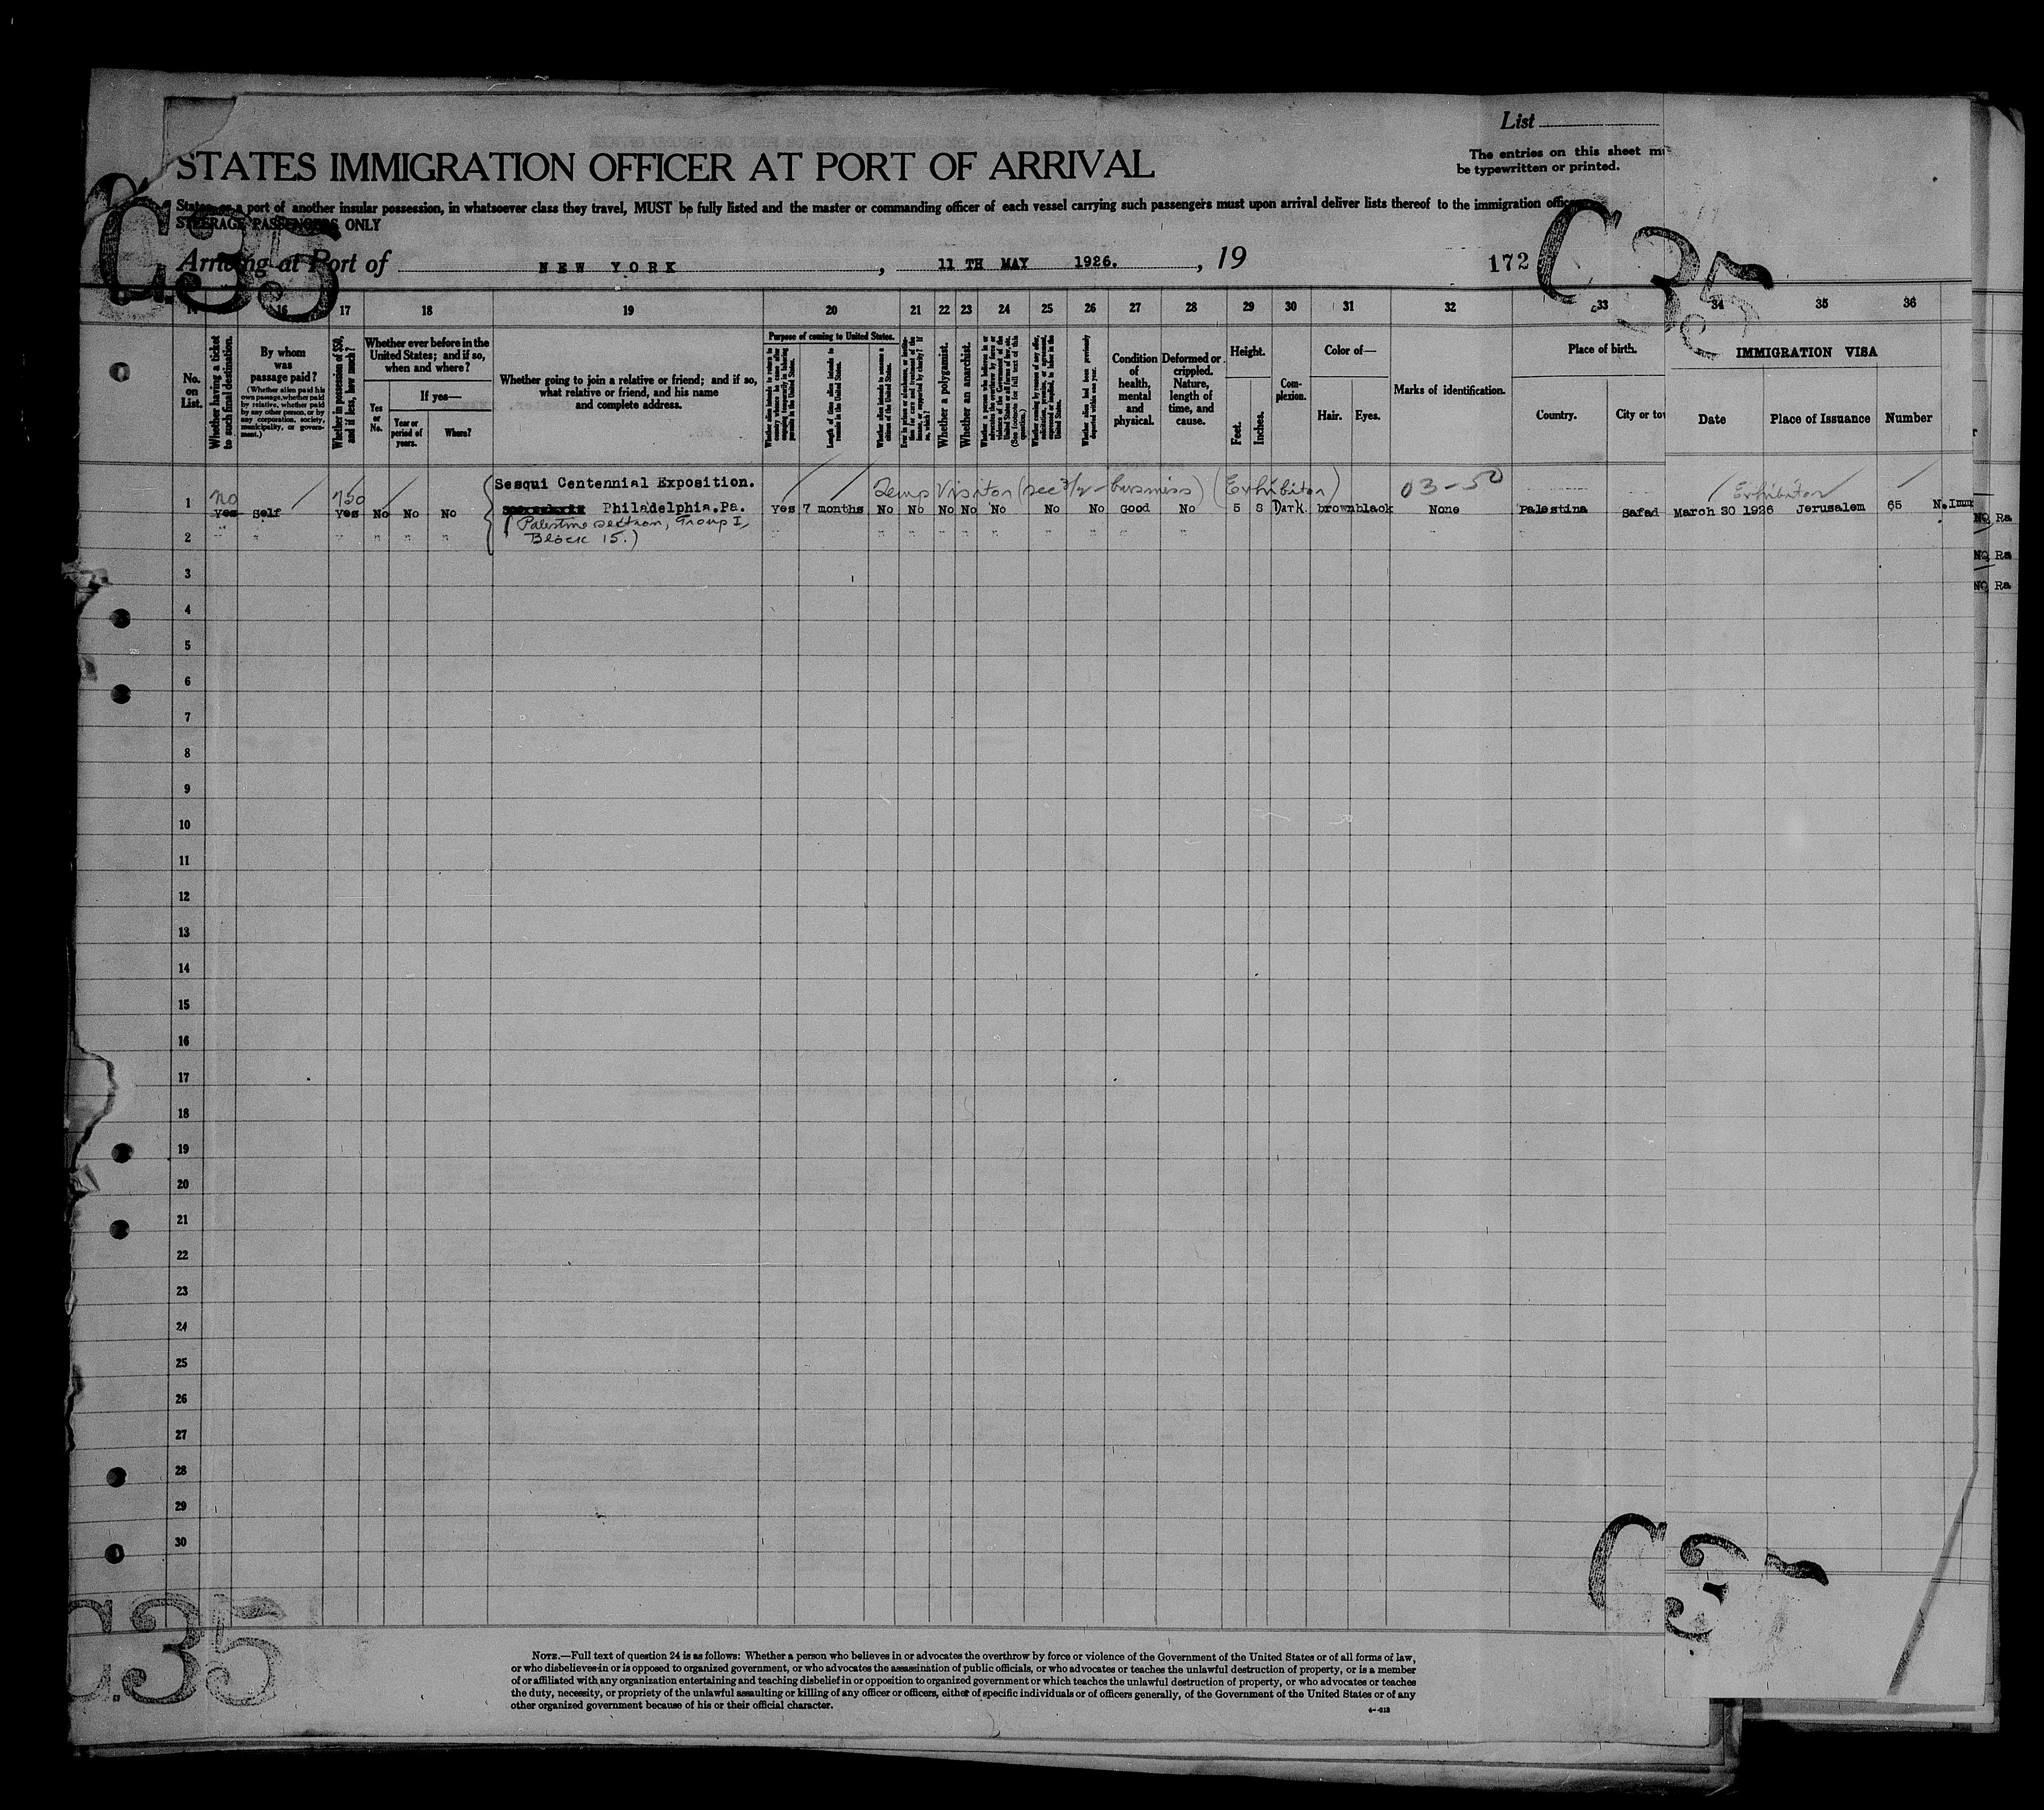 List
STATES IMMIGRATION OFFICER AT PORT OF ARRIVAL
The entries on this sheet
be typewritten or printed.
States, or a port of another insular possession, in whatsoever class they travel, MUST be fully listed and the master or commanding officer of each vessel carrying such passengers must upon arrival deliver lists thereof to the immigration
STEERAGE PASSENGERS ONLY
C35
C35
Arriving at Port of NEW YORK, 11 TH MAY 1926., 19
172
16 17 18 19 20 21 22 23 24 25 26 27 28 29 30 31 32 33 34 35 36
No. on List.
Whether having a ticket to such final destination.
By whom was passage paid?
(Whether alien paid his own passage, whether paid by relative, whether paid by any other person, or by any corporation, society, municipality, or government.)
Whether in possession of $50, and if less, how much?
Whether ever before in the United States; and if so, when and where?
Yes or No.
If yes—
Year or period of years.
Where?
Whether going to join a relative or friend; and if so, what relative or friend, and his name and complete address.
Purpose of coming to United States.
Whether alien intends to return to country whence he came after engaging temporarily in laboring pursuits in the United States.
Length of time alien intends to remain in the United States.
Whether alien intends to become a citizen of the United States.
Whether a polygamist.
Whether an anarchist.
Condition of health, mental and physical.
Deformed or crippled. Nature, length of time, and cause.
Height.
Feet.
Inches.
Complexion.
Color of—
Hair.
Eyes.
Marks of identification.
Place of birth.
Country.
City or
IMMIGRATION VISA
Date
Place of Issuance
Number
Sesqui Centennial Exposition.
no 750 Temp Visitor (sec 3/2 - business) (Exhibitor) 03-50 Exhibitor
1 Yes Self Yes No No No Philadelphia.Pa. Yes 7 months No No No No No No No Good No 5 8 Dark brown black None Palestina Safad March 30 1926 Jerusalem 65 N.Imm
(Palestine section, Group I,
Block 15.)
NO Ra
NO Ra
NO Ra
2
3
4
5
6
7
8
9
10
11
12
13
14
15
16
17
18
19
20
21
22
23
24
25
26
27
28
29
30
C35
C35
NOTE.—Full text of question 24 is as follows: Whether a person who believes in or advocates the overthrow by force or violence of the Government of the United States or of all forms of law,
or who disbelieves in or is opposed to organized government, or who advocates the assassination of public officials, or who advocates or teaches the unlawful destruction of property, or is a member
of or affiliated with any organization entertaining and teaching disbelief in or opposition to organized government or which teaches the unlawful destruction of property, or who advocates or teaches
the duty, necessity, or propriety of the unlawful assaulting or killing of any officer or officers, either of specific individuals or of officers generally, of the Government of the United States or of any
other organized government because of his or their official character.